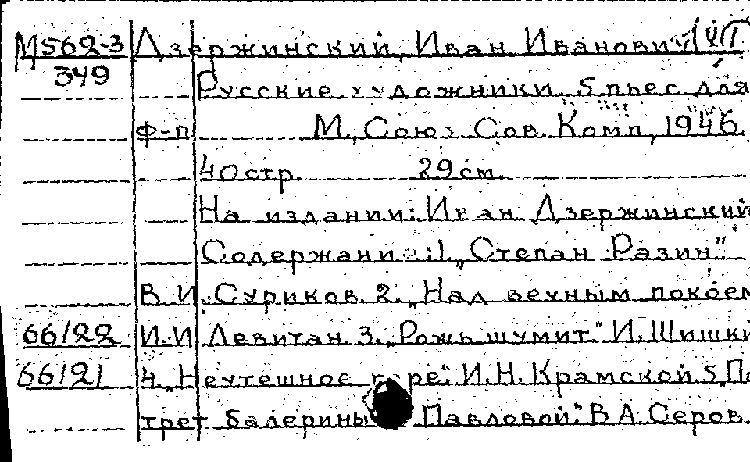 М562-3 Дзержинский, Иван Иванович VI
349 Русские художники. 5 пьес для
ф-п М., Союз Сов. Комп., 1946.
40 стр. 29 см.
На издании: Иван Дзержинский
Содержание: 1. „Степан Разин"
В.И. Суриков. 2. „Над вечным покоем
66/22 И.И. Левитан. 3. „Рожь шумит." И. Шишки
66121 4. „Неутешное горе". И.Н. Крамской. 5. „По
трет балерины Павловой." В.А. Серов.